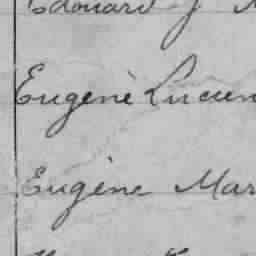 Edouard J
Eugenè Lucien
Eugène Mar